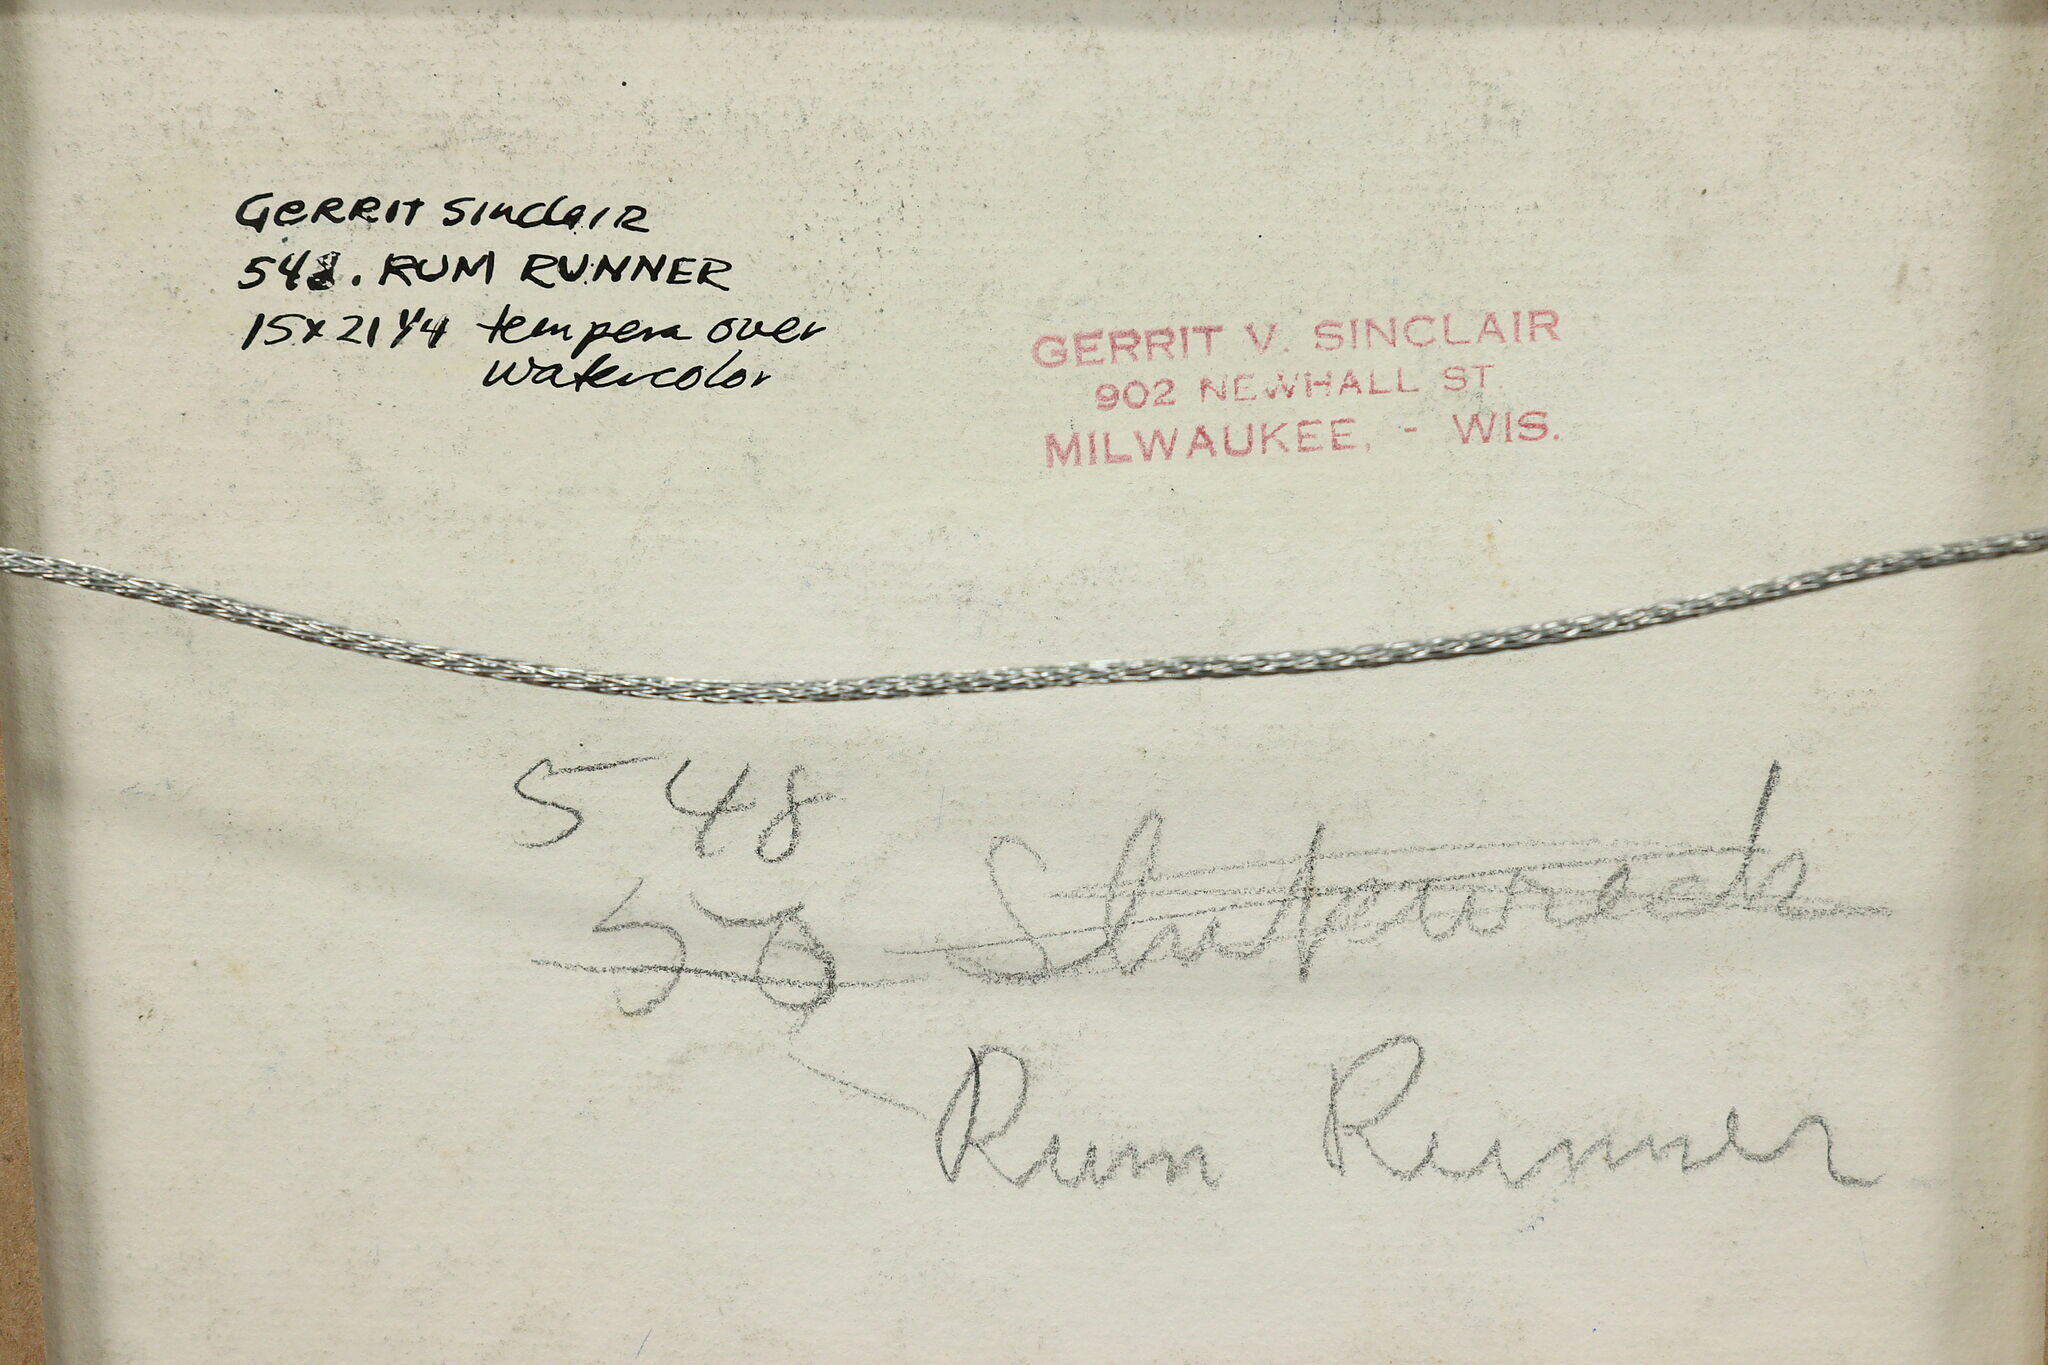 GERRIT Sinclair
548. RUM RUNNER
15x21 1/4 tempera over
watercolor
GERRIT V. SINCLAIR
902 NEWHALL ST.
MILWAUKEE, - WIS.
548
50
Rum Runner